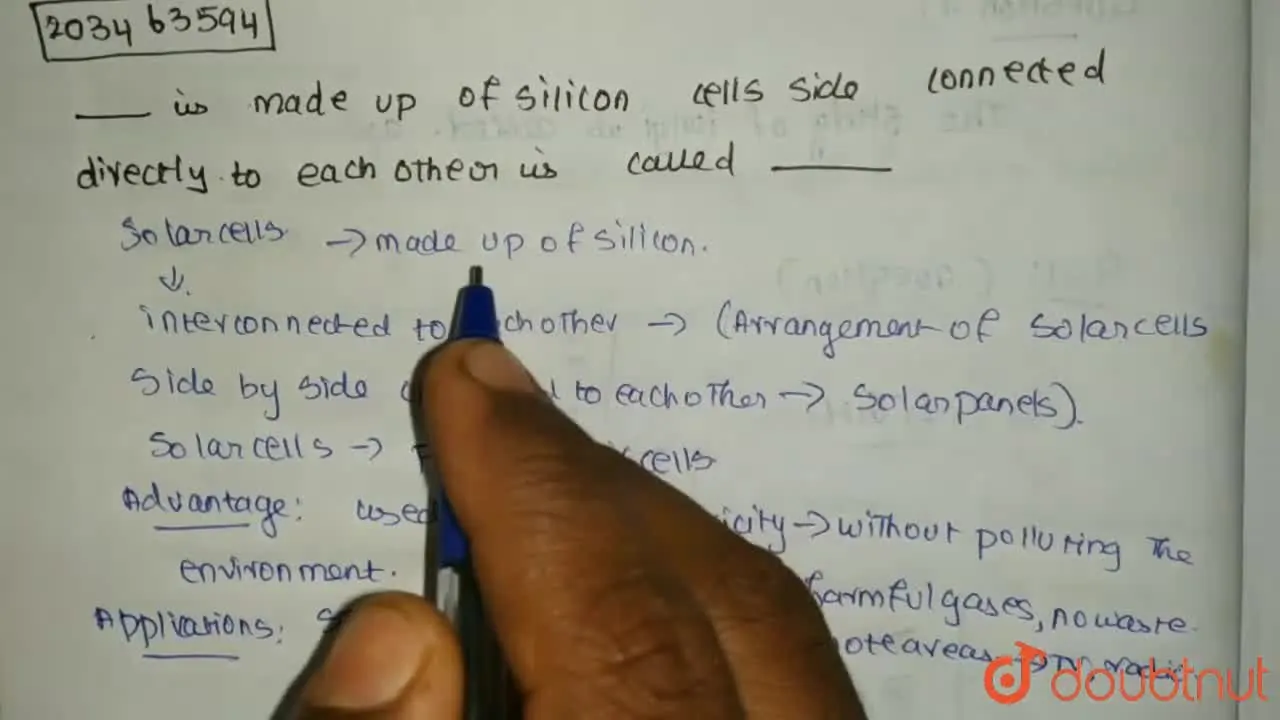 2034 63594
___ is made up of silicon cells side connected
directly to each other is called ___
Solarcells → made up of silicon.
↓
interconnected to each other → (Arrangement of solarcells
Side by side to eachother → Solarpanels).
Solarcells → cells
Advantage: used → without polluring The
environment.
harmful gases, no waste.
Applications: areas → TV, radio
doubtnut